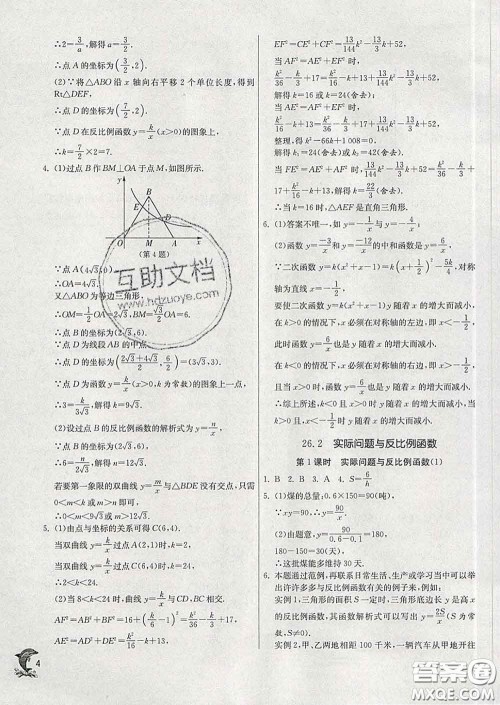 ∴2=3/a,解得 a=3/2.
∴点 A 的坐标为(3/2,2).
(2)∵将△ABO沿 x 轴向右平移 2 个单位长度,得到
Rt△DEF,
∴点 D 的坐标为(7/2,2).
∵点 D 在反比例函数 y=k/x(x>0)的图象上,
∴k=7/2×2=7.
4. (1)过点 B 作 BM⊥OA 于点 M,如图所示.
y
B
E
O M A x
(第 4 题)
∵点 A(4√3,0),
∴OA=4√3.
又∵△ABO 为等边三角形,
∴OM=1/2OA=2√3,BM=√3/2OA=6.
∴点 B 的坐标为(2√3,6).
∵点 D 为线段 AB 的中点,
∴点 D 的坐标为((2√3+4√3)/2,6/2)=(3√3,3).
∵点 D 为函数 y=k/x(x>0,k 为常数)的图象上一点,
∴3=k/3√3,解得 k=9√3.
(2)设过点 B 的反比例函数的解析式为 y=n/x,
∴n=2√3×6=12√3.
若要第一象限的双曲线 y=m/x与△BDE 没有交点,只需
0<m<k 或 m>n,
∴0<m<9√3或 m>12√3.
5. (1)由点与坐标的关系可得 C(6,4).
当双曲线 y=k/x过点 A(2,1)时,k=2;
当双曲线 y=k/x过点 C(6,4)时,k=24.
∴2<k<24.
(2)当 2<k<24 时,双曲线 y=k/x与 CD,BC 相交.
AF²=BA²+BF²=4²+(k/6-1)²=k²/36-k/3+17,
AE²=AD²+DE²=k²/16-k+13,
EF²=CE²+CF²=13/144k²-13/3k+52,
当 AF²=AE²+EF²时,
k²/36-k/3+17=k²/16-k+13+13/144k²-13/3k+52,
解得 k=16 或 k=24(舍去);
当 AE²=AF²+EF²时,
k²/16-k+13=k²/36-k/3+17+13/144k²-13/3k+52,
整理,得 k²-66k+1008=0.
解得 k=24(舍去)或 k=42(舍去);
当 EF²=AF²+AE²时,13/144k²-13/3k+52=k²/36-k/3+
17+k²/16-k+13,解得 k=22/3(舍去).
∴当 k=16 时,△AEF 是直角三角形.
6. (1)答案不唯一,如 y=-1/x与 y=-4/x.
(2)函数 y=-3/x和 y=-12/x的中和函数是 y=-6/x.
∵二次函数 y=k(x²+x-1)=k(x+1/2)²-5/4k,对称
轴为直线 x=-1/2,
要使二次函数 y=k(x²+x-1) y 随着 x 的增大而减小,
在 k>0 的情况下,x 必须在对称轴的左边,即 x<-1/2
时,才能使得 y 随着 x 的增大而减小;
在 k<0 的情况下,x 必须在对称轴的右边,即 x>-1/2
时,才能使得 y 随着 x 的增大而减小,
且当 k>0 时函数 y=6/x也是 y 随着 x 的增大而减小.
∴综上所述,k>0 且 x<-1/2时 y 随着 x 的增大而减小.
26.2 实际问题与反比例函数
第 1 课时 实际问题与反比例函数(1)
1. B 2. B 3. A 4. S=6/h
5. (1)煤的总量:0.6×150=90(吨),
∵xy=90,∴y=90/x.
(2)由题意,y=90/x=90/0.5=180,
180-150=30(天).
∴这批煤能多维持 30 天.
6. 本题通过范例,再联系日常生活、生产或学习当中可以举
出许许多多与反比例函数有关的例子来,例如:
实例 1,三角形的面积 S 一定时,三角形底边长 y 是高 x
的反比例函数,其函数解析式可以写出 y=2S/x(S 为常
数,S≠0).
实例 2,甲、乙两地相距 100 千米,一辆汽车从甲地开往
4
互助文档
www.hdzuoye.com
答案圈
MXQE.COM